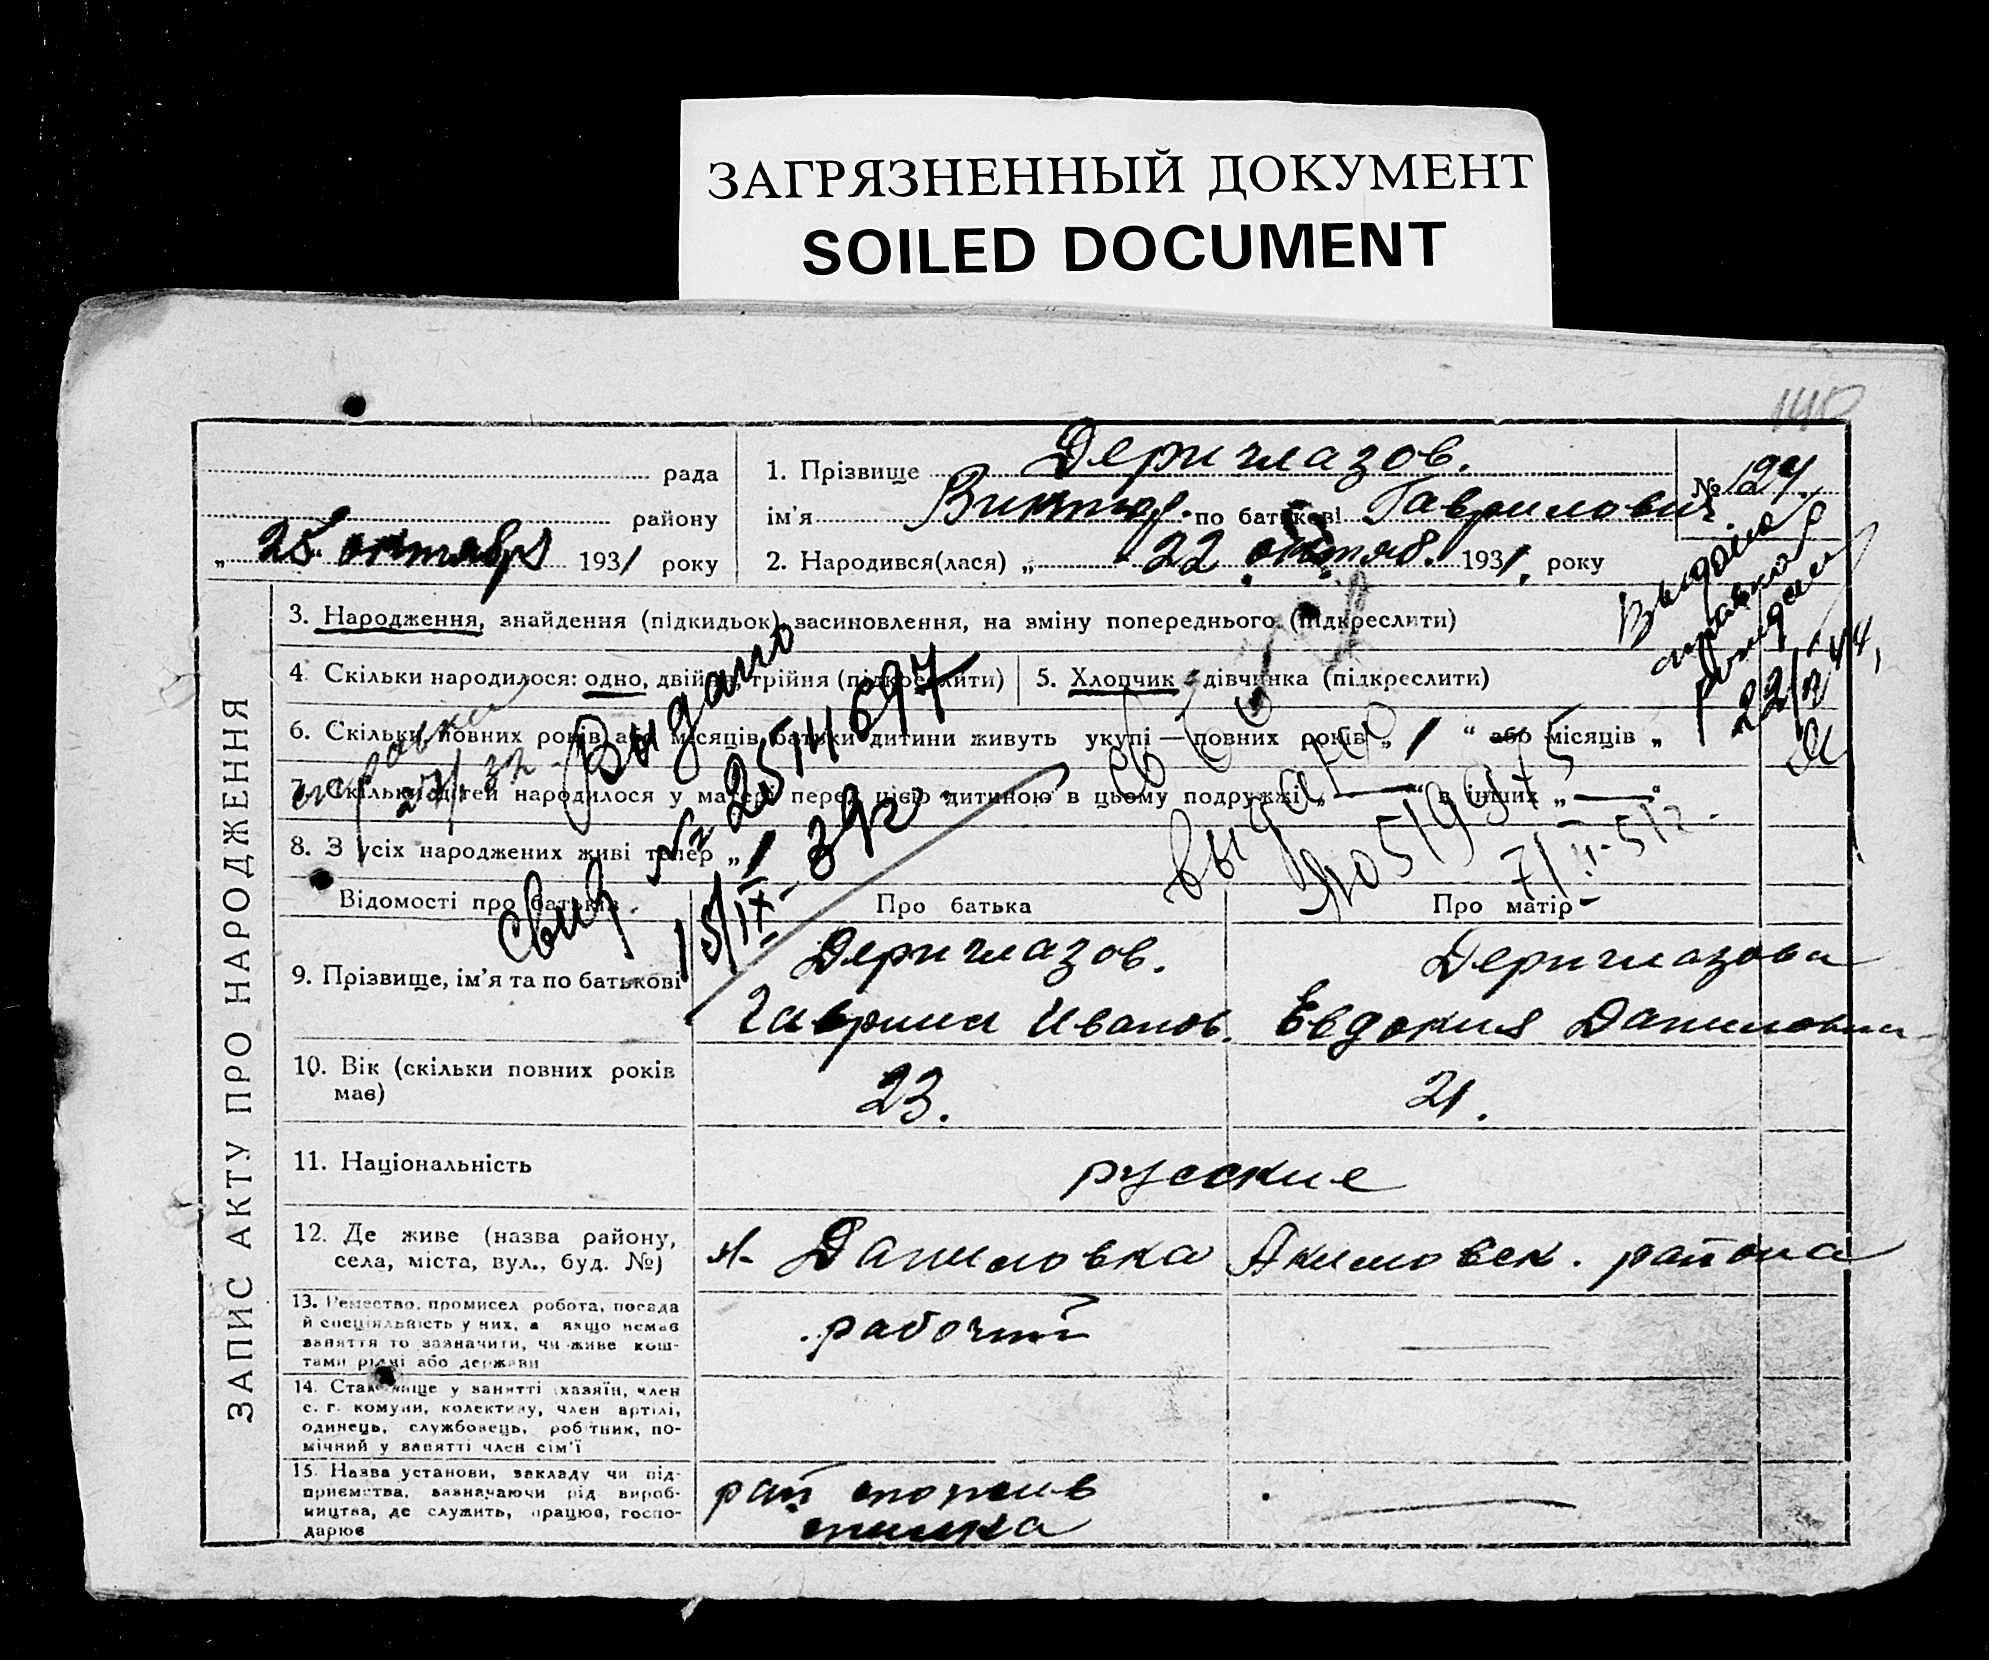 ЗАГРЯЗНЕННЫЙ ДОКУМЕНТ
SOILED DOCUMENT
140
рада
району
„ 25 “ октября 1931 року
1. Прізвище Дериглазов.
ім'я Виктор. по батькові Гаврилович
2. Народився(лася) „ 22 октяб. 1931. року
№ 124.
Выдано
справка
22/ 44,
ЗАПИС АКТУ ПРО НАРОДЖЕННЯ
3. Народження, знайдення (підкидьок) засиновлення, на зміну попереднього (підкреслити)
4. Скільки народилося: одно, двійня, трійня (підкреслити)
5. Хлопчик дівчинка (підкреслити)
6. Скільки повних років або місяців батьки дитини живуть укупі — повних років „ 1 “ або місяців „
7. Скільки дітей народилося у матері перед цією дитиною в цьому подружжі „ — “ в інших „ — “
8. З усіх народжених живі тепер „ 1
Выдано
свид № 2514697
15/IX - 39г.
выдано
№0519975
7/II-51г.
Відомості про батьків
Про батька
Про матір
9. Прізвище, ім'я та по батькові
Дериглазов.
Гаврил Иванов.
Дериглазова
Евдокия Даниловна
10. Вік (скільки повних років має)
23.
21.
11. Національність
русские
12. Де живе (назва району,
села, міста, вул., буд. №)
Даниловка Акимовск. района
13. Ремество, промисел робота, посада
й спеціяльність у них, а якщо немає
заняття то зазначити, чи живе кош-
тами рідні або держави
рабочий
14. Становище у занятті (хазяїн, член
с. г. комуни, колективу, член артілі,
одинець, службовець, робітник, по-
мічний у занятті член сім'ї
15. Назва установи, закладу чи під-
приємства, зазначаючи рід вироб-
ництва, де служить, працює, госпо-
дарює
рай